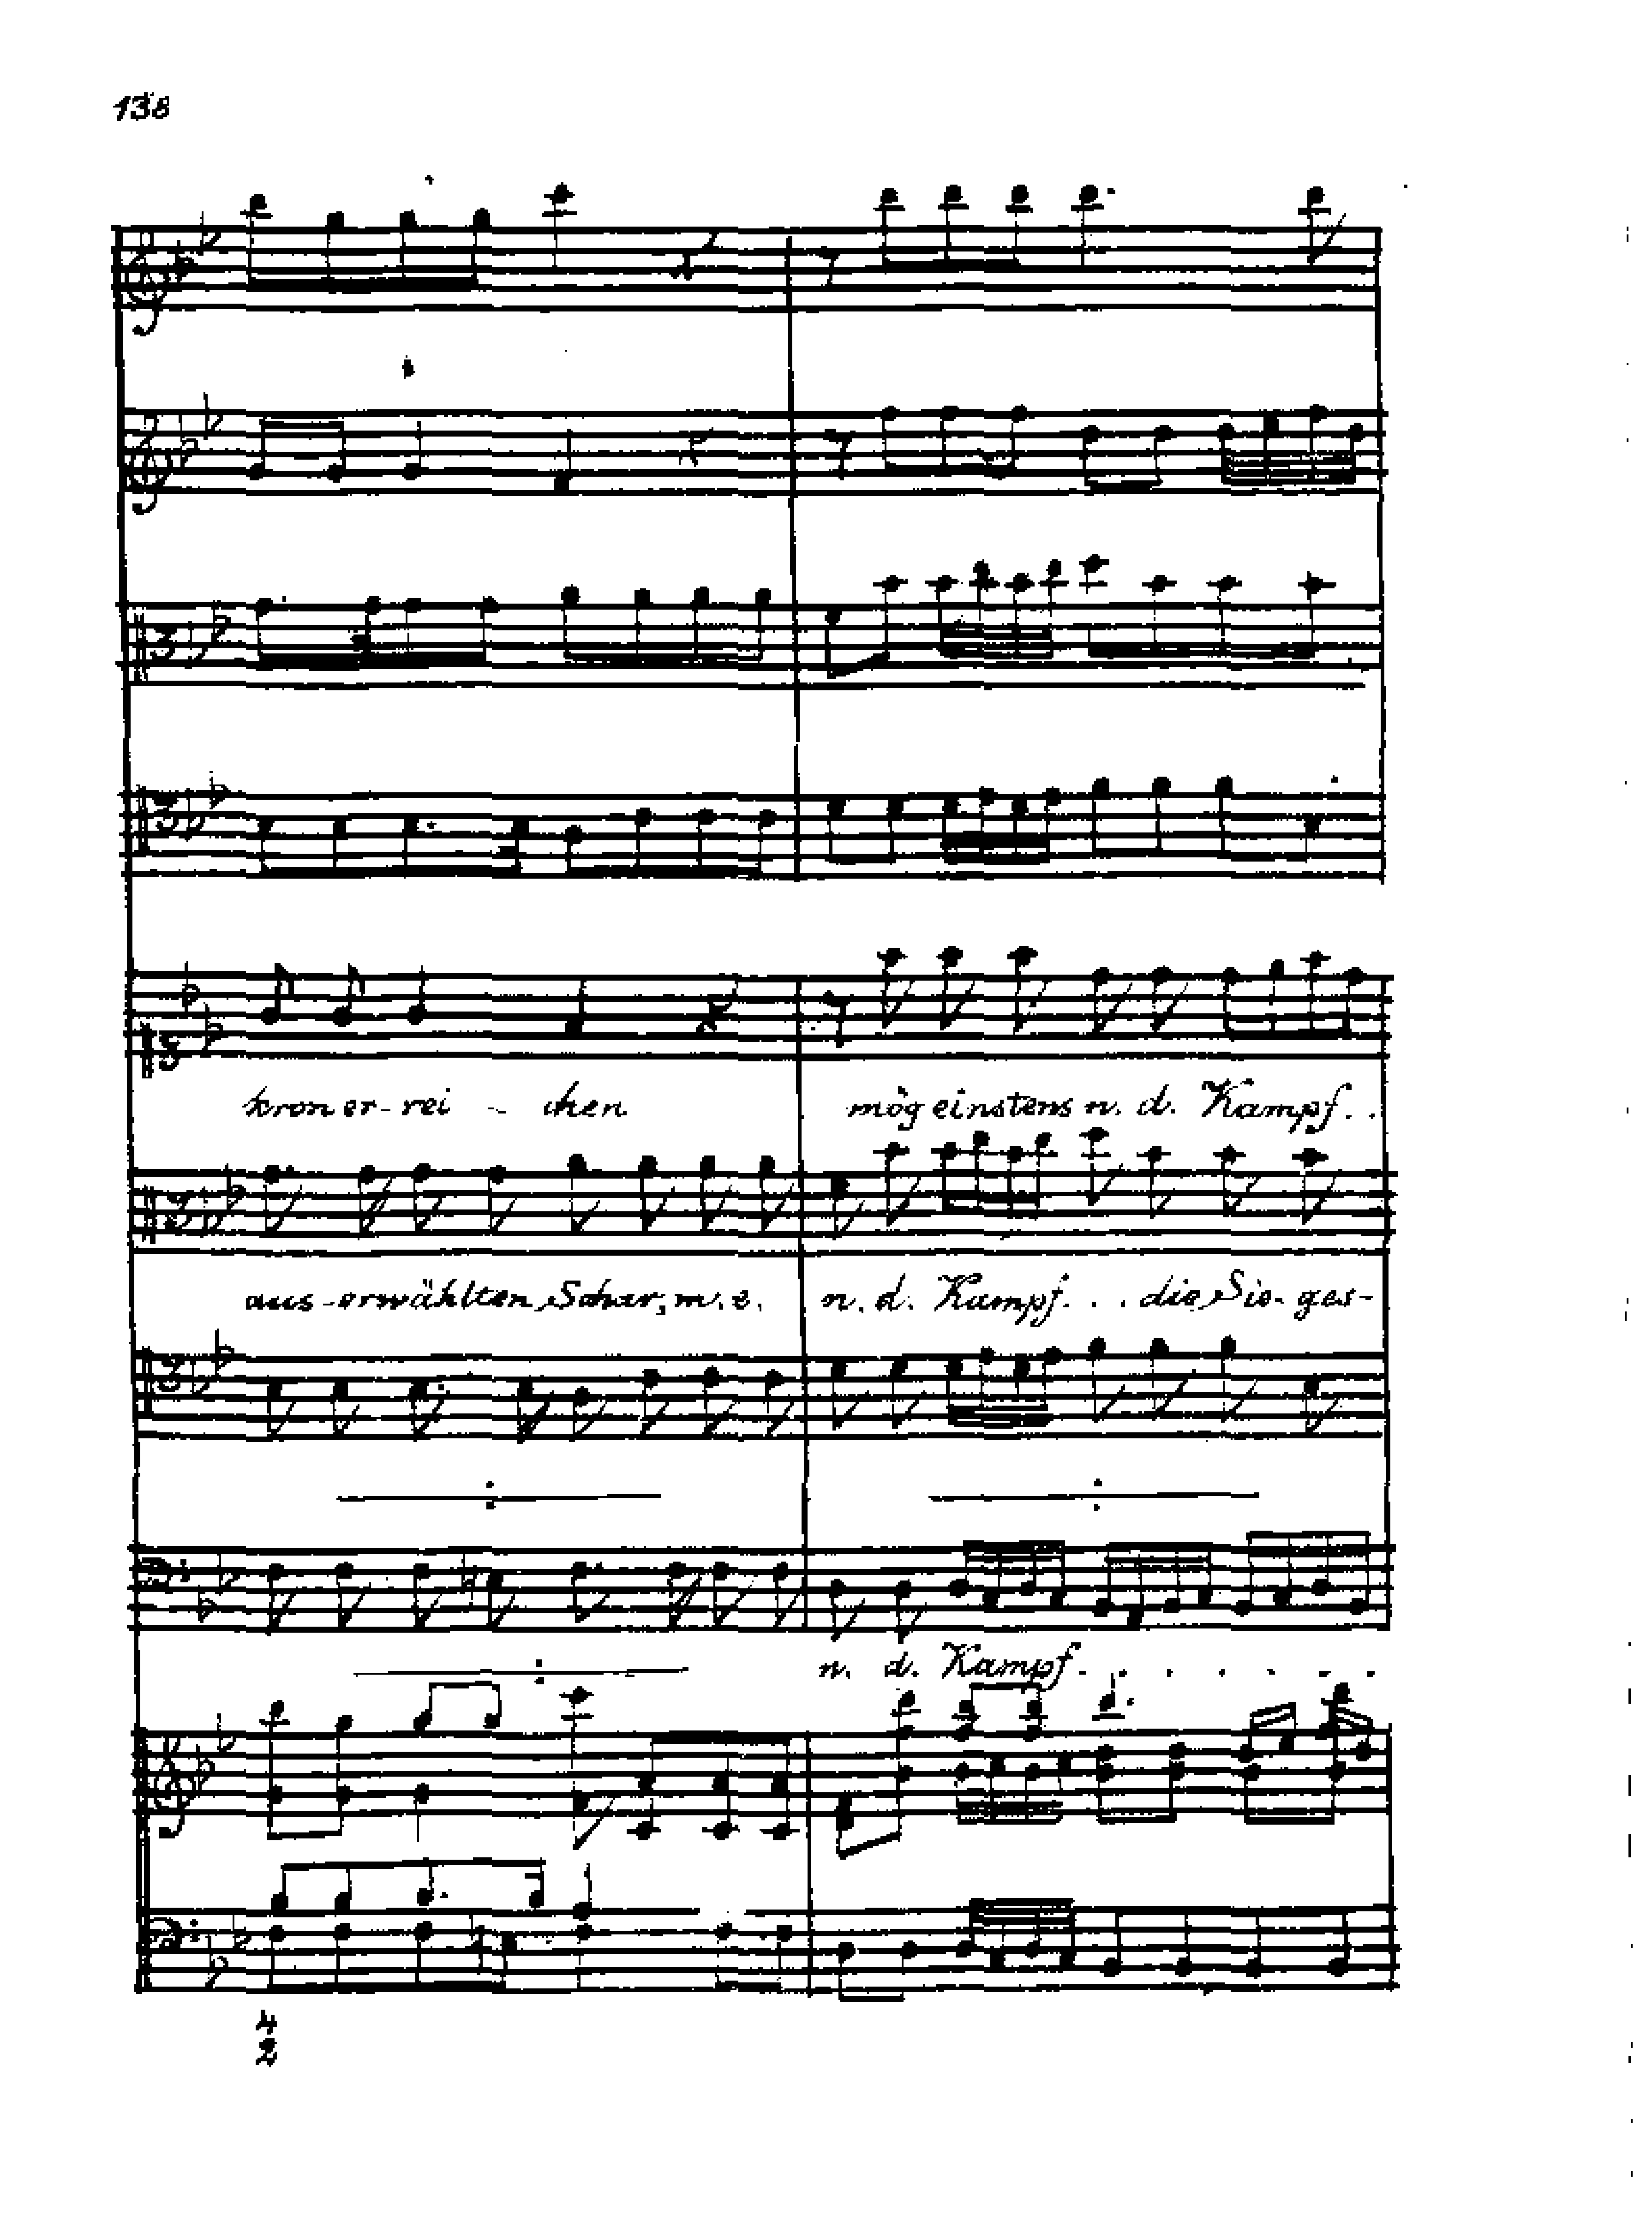 138
kron er-rei - chen mög einstens n. d. Kampf . .
aus-erwählten Schar, m. e. n. d. Kampf . . . die Sie-ges-
n. d. Kampf . . . . . . .
4
2